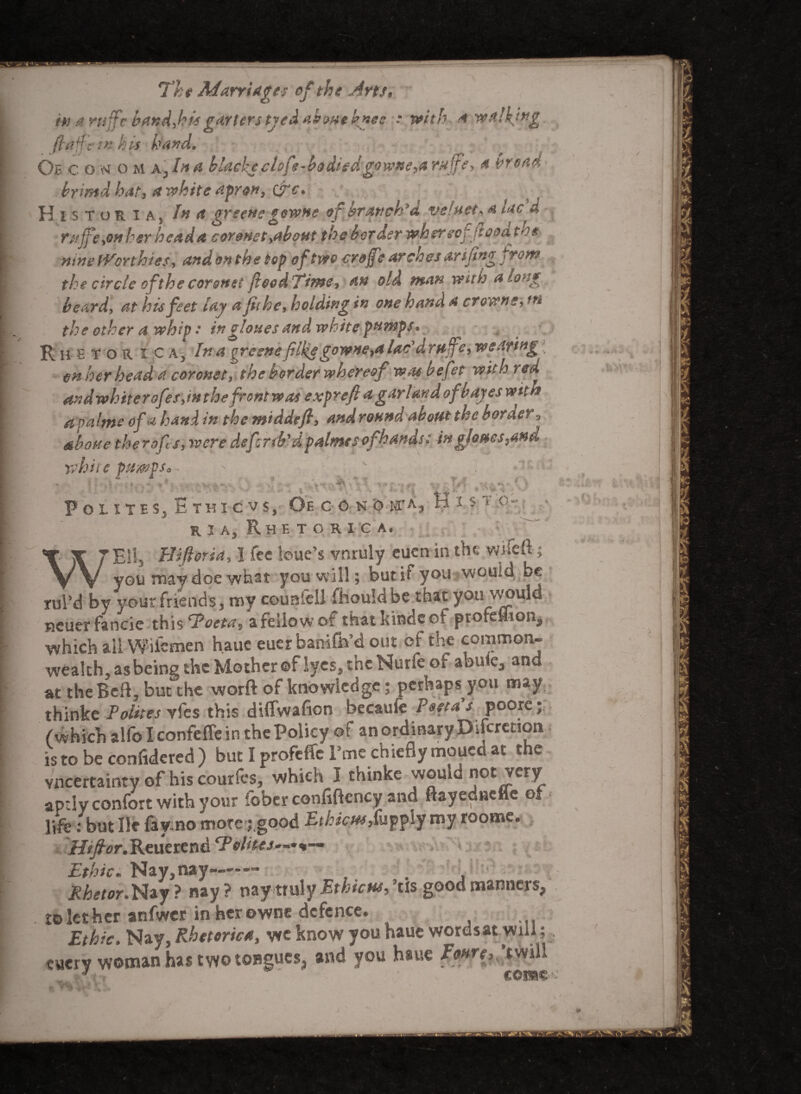 The Marriages of the Arts,
in a ruffe band, his garters tyed aboue knee : with a walking
ſtaffe in his hand.
OECONOMA, In a blacke cloſe-bodied gowne, a ruffe, a broad
brimd hat, a white apron, &c.
HISTORIA, In a greene gowne of branch'd veluet, a lac'd
ruffe, on her head a coronet, about the border whereof ſtood the
nine Worthies, and on the top of two croſſe arches ariſing from
the circle of the coronet ſtood Time, an old man with a long
beard, at his feet lay a ſithe, holding in one hand a crowne, in
the other a whip : in gloues and white pumps.
RHETORICA, In a greene ſilke gowne, a lac'd ruffe, wearing
on her head a coronet, the border whereof was beſet with red
and white roſes, in the front was expreſt a garland of bayes with
a palme of a hand in the middeſt, and round about the border,
aboue the roſes, were deſcrib'd palmes of hands: in gloues, and
white pumps.
POLITES, ETHICVS, OECONOMA, HISTO-
RIA, RHETORICA.
WEll, Hiſtoria, I ſee loue's vnruly euen in the wiſeſt;
you may doe what you will; but if you would be
rul'd by your friends, my counſell ſhould be that you would
neuer fancie this Poeta, a fellow of that kinde of profeſſion,
which all Wiſemen haue euer baniſh'd out of the common-
wealth, as being the Mother of lyes, the Nurſe of abuſe, and
at the Beſt, but the worſt of knowledge; perhaps you may
thinke Polites vſes this diſſwaſion becauſe Poeta's poore;
(which alſo I confeſſe in the Policy of an ordinary Diſcretion
is to be conſidered) but I profeſſe I'me chiefly moued at the
vncertainty of his courſes, which I thinke would not very
aptly conſort with your ſober conſiſtency and ſtayedneſſe of
life : but Ile ſay no more ; good Ethicus, ſupply my roome.
Hiſtor. Reuerend Polites----
Ethic. Nay, nay------
Rhetor. Nay ? nay ? nay truly Ethicus, 'tis good manners,
to let her anſwer in her owne defence.
Ethic. Nay, Rhetorica, we know you haue words at will;
euery woman has two tongues, and you haue Foure, 'twill
come